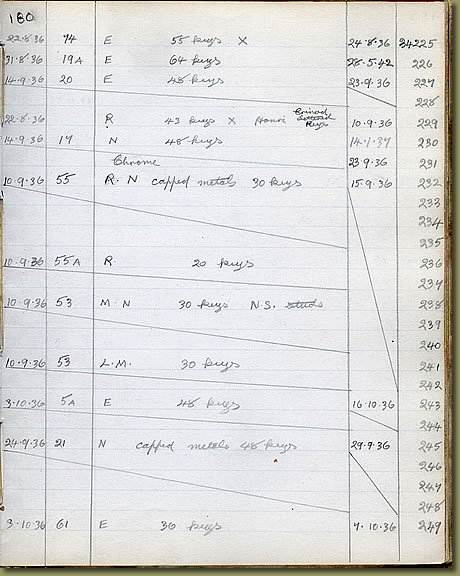 180
22.8.36 74 E 55 keys X 24.8.36 34225
31.8.36 19A E 64 keys 28.5.42 226
14.9.36 20 E 48 keys 23.9.36 227
228
22.8.36 R 43 keys X Henri Keys 10.9.36 229
14.9.36 17 N 48 keys 14.1.37 230
Chrome 23.9.36 231
10.9.36 55 R. N capped metals 30 keys 15.9.36 232
233
234
235
10.9.36 55A R 20 keys 236
237
10.9.36 53 M. N 30 keys N.S. studs 238
239
240
10.9.36 53 L.M. 30 keys 241
242
3.10.36 5A E 48 keys 16.10.36 243
244
24.9.36 21 N capped metals 48 keys 29.9.36 245
246
247
248
3.10.36 61 E 30 keys 7.10.36 249